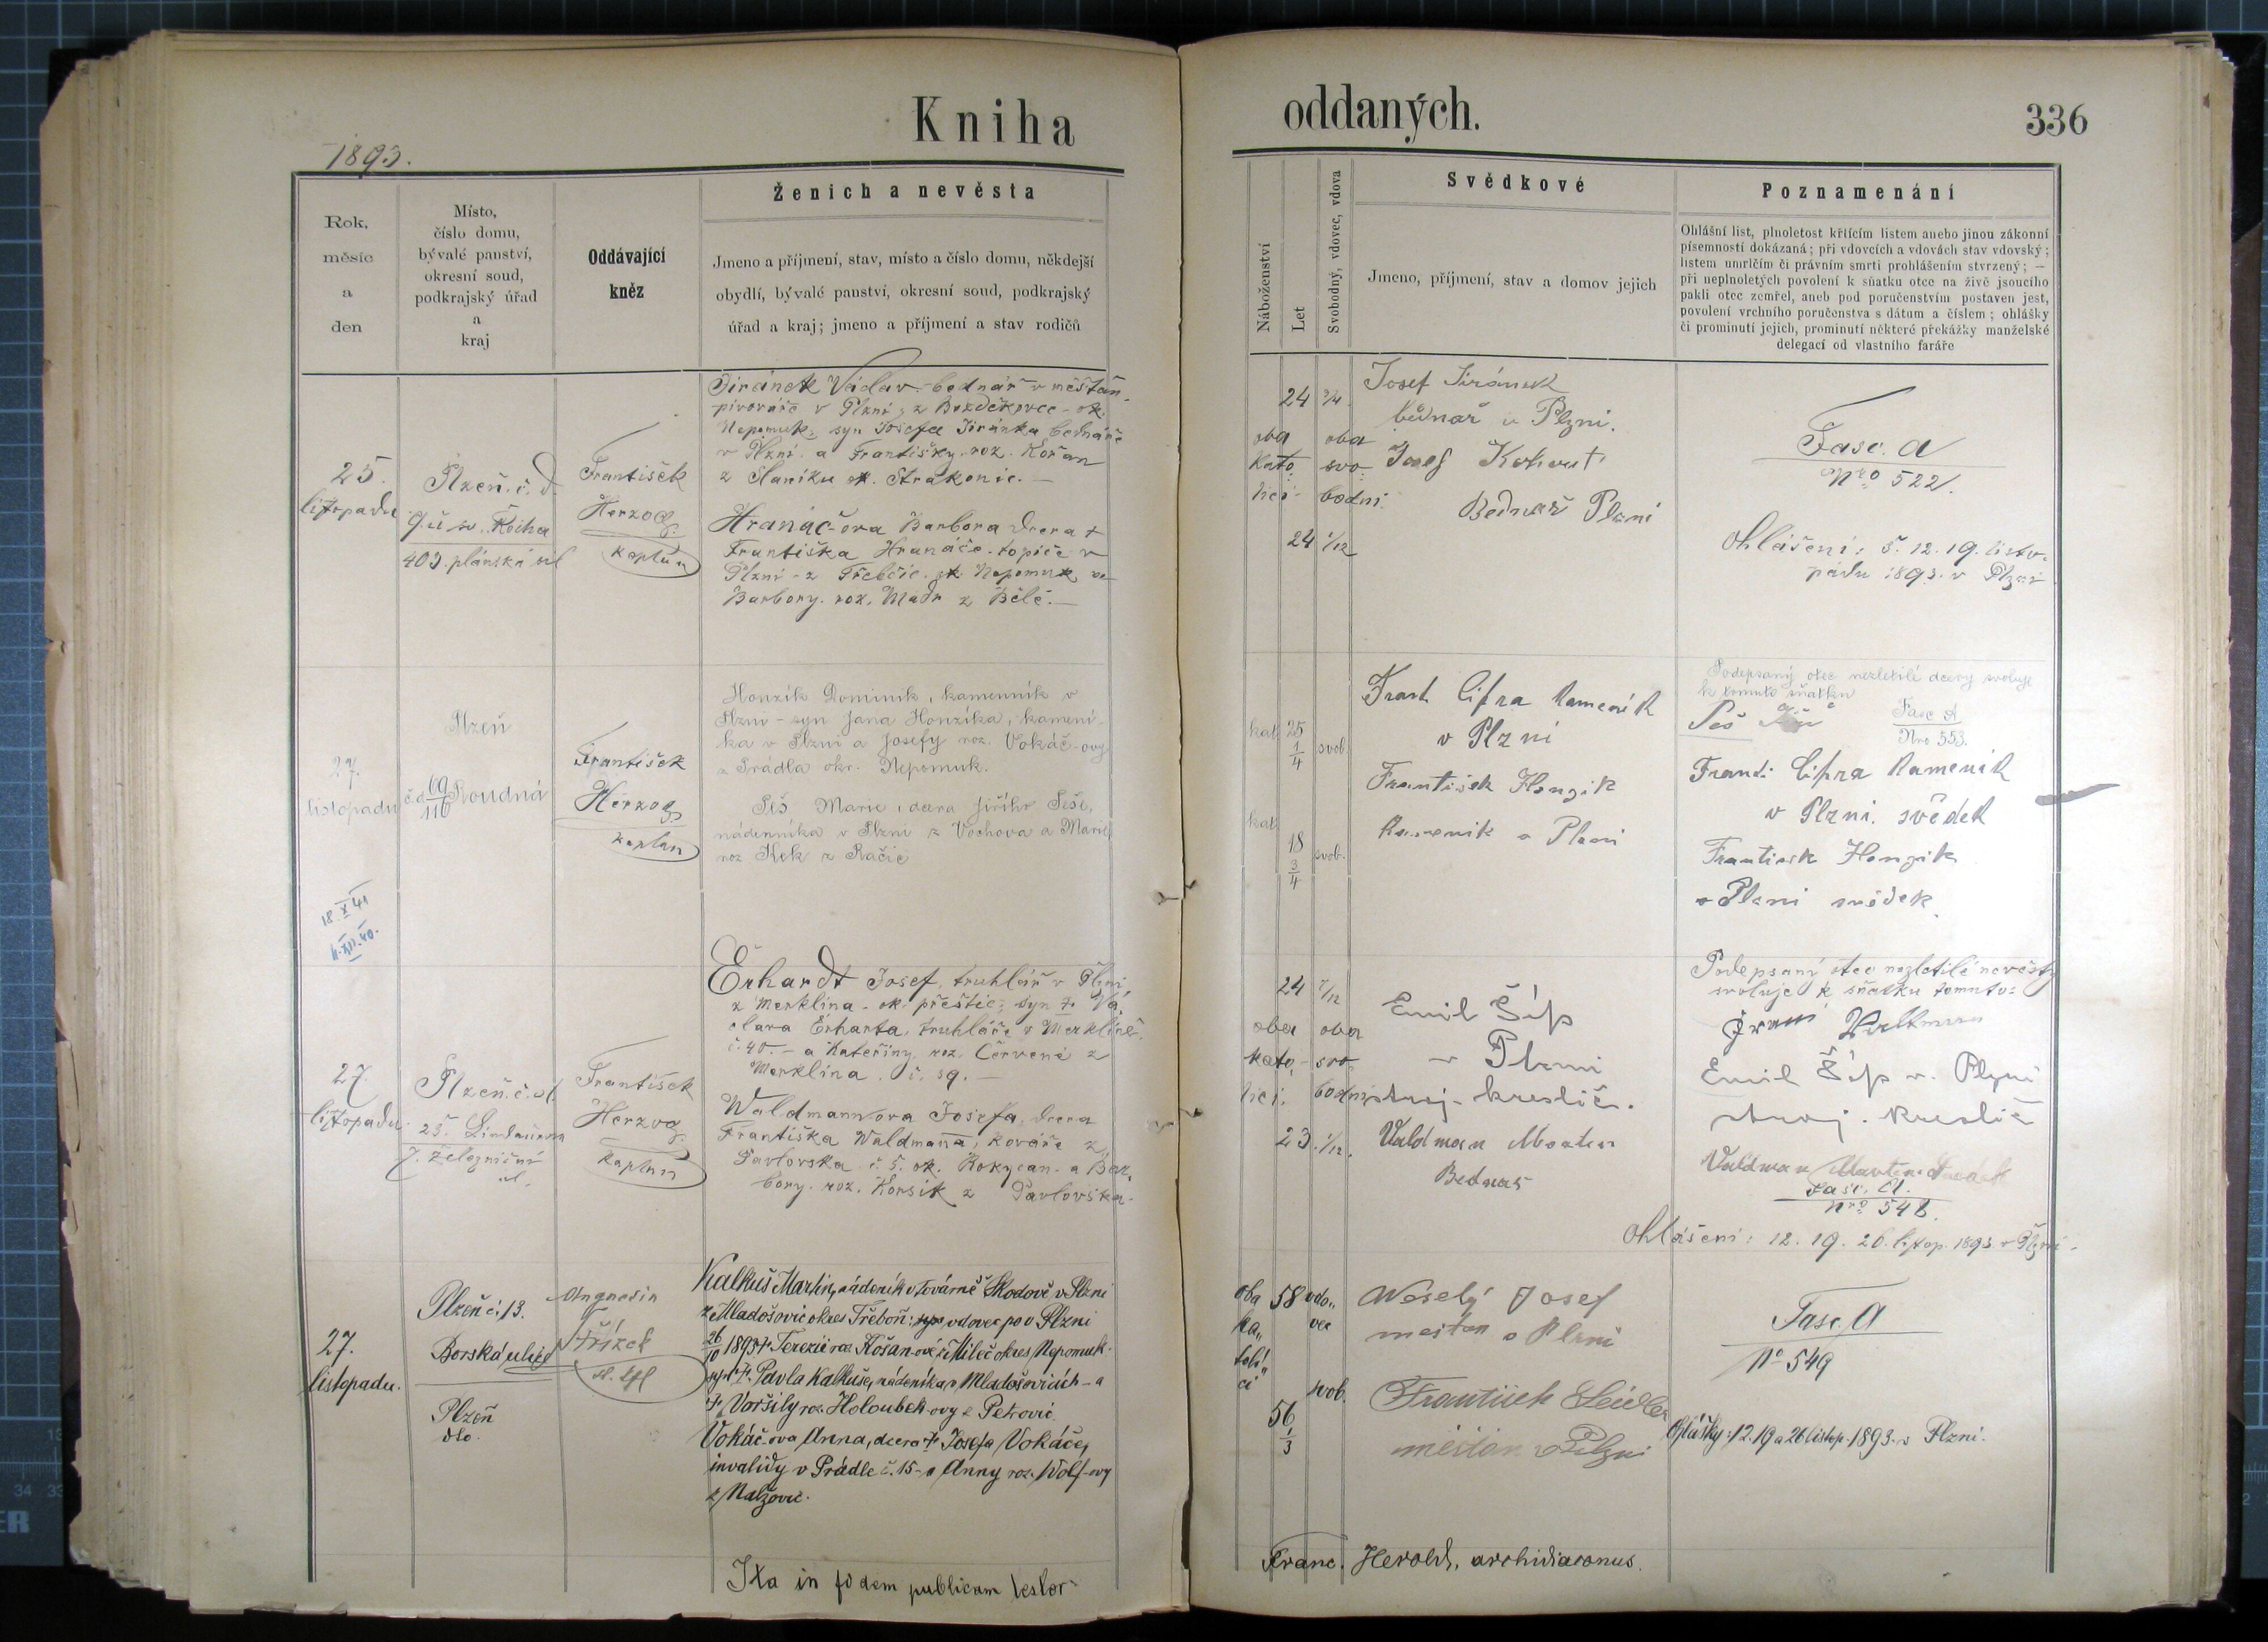 Kniha
oddaných.
336
1893.
Rok,
měsíc
a
den
Místo,
číslo domu,
bývalé panství,
okresní soud,
podkrajský úřad
a
kraj
Oddávající
kněz
Ženich a nevěsta
Jmeno a příjmení, stav, místo a číslo domu, někdejší
obydlí, bývalé panství, okresní soud, podkrajský
úřad a kraj; jmeno a příjmení a stav rodičů
Náboženství
Let
Svobodný, vdovec, vdova
Svědkové
Jmeno, příjmení, stav a domov jejich
Poznamenání
Ohlášní list, plnoletost křticím listem anebo jinou zákonní
písemností dokázaná; při vdovcích a vdovách stav vdovský;
listem umrlčím či právním smrti prohlášením stvrzený; —
při neplnoletých povolení k sňatku otce na živě jsoucího
pakli otec zemřel, aneb pod poručenstvím postaven jest,
povolení vrchního poručenstva s dátum a číslem; ohlášky
či prominutí jejich, prominutí některé překážky manželské
delegací od vlastního faráře
25.
listopadu
Plzeň. č. d.
9. u sv. Rocha
403. plánská ul
František
Herzog
kaplan
Jiránek Václav - bednář v měšťan.
pivováře v Plzni, z Bezděkovce - ok.
Nepomuk, syn Josefa Jiránka bednáře
v Plzni a Františky roz. Kořan
z Slaníku ok. Strakonic. —
Hranáč-ova Barbora dcera
Františka Hranáče - topiče v
Plzni - z Třebčic ok. Nepomuk a
Barbory. roz. Mádr z Bělé. —
24 3/4
oba
kato
lici
oba
svo
bodní
24 1/12
Josef Jiránek
bednař v Plzni.
Josef Kohout
Bednař Plzni
Fasc. A
Nro 522.
Ohlášení: 5. 12. 19. listo-
padu 1893. v Plzni
27.
listopadu
Plzeň
č. d. 69/110 Roudná
František
Herzog
kaplan
Honzík Dominik, kamenník v
Plzni - syn Jana Honzíka, kamení-
ka v Plzni a Josefy roz. Vokáč-ovy
z Prádla okr. Nepomuk.
Peš Marie, dcera Jiřího Peše,
nádenníka v Plzni z Vochova a Marie
roz Kek z Račic
kat 25 1/4 svob.
kat 18 3/4 svob.
Frant Cifra Kameník
v Plzni
František Honzik
Kamenik v Plzni
Podepsaný otec nezletilé dcery svoluje
k tomuto sňatku
Peš
Fasc A
Nro 553.
Frant. Cifra Kameník
v Plzni. svědek
Frantisek Honzik
v Plzni svědek
18. X 41
27.
listopadu
Plzeň. č. d.
25. Lindauerova
7. železniční
ul.
František
Herzog
kaplan
Erhardt Josef, truhlář v Plzni,
z Merklína - ok. přeštic; syn † Vá-
clava Erharta, truhláře v Merklíně
č. 40. - a Kateřiny roz. Červené z
Merklína č. 39. —
Waldmannova Josefa, dcera
Františka Waldmanna, kováře z
Pavlovska č. 5. ok. Rokycan - a Bar-
bory. roz. Korsík z Pavlovska.
24 7/12
oba
kato-
lici.
oba
svo
bodni
23 1/12.
Emil Šíp
v Plzni
stroj. kreslič.
Valdman Martin
Bednař
Podepsaný otec nezletilé nevěsty
svoluje k sňatku tomuto:
Emil Šíp v. Plzni
stroj. kreslič
Valdman Martin
Fasc. A.
Nro 548.
Ohlášení: 12. 19. 26. listop. 1893 v Plzni.
27.
listopadu.
Plzeň č. 13.
Borská ulice
Plzeň
dto.
Řízek
Kalkuš Martin, nádeník v továrně Škodově v Plzni
z Mladošovic okres Třeboň: vdovec po v Plzni
26/10 1893 † Terezii roz. Košan-ové z Mileč okres Nepomuk
syn † Pavla Kalkuše, nádeníka v Mladošovicích - a
† Voršily roz. Holoubek-ovy z Petrovic.
Vokáč-ova Anna, dcera † Josefa Vokáče,
invalidy v Prádle č. 15 - a Anny roz. Wolf-ovy
z Nalžovic.
oba
ka„
tolí„
ci
58 vdo„
vec
svob.
56
1/3
Weselý Josef
mestan v Plzni
František Seidler
měštan v Plzni
Fasc. A
No 549
Ohlášky: 12. 19 a 26 listop. 1893. v Plzni.
Ita in fidem publicam testor
Franc. Herold, archidiaconus.